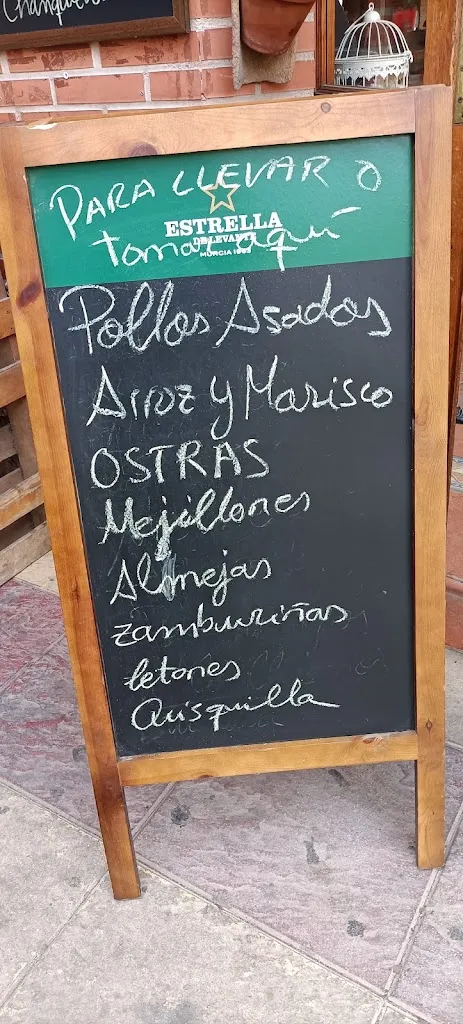 PARA LLEVAR O
ESTRELLA
DE LEVANTE
MURCIA 1963
tomar aquí
Pollos Asados
Arroz y Marisco
OSTRAS
Mejillones
Almejas
zamburiñas
letones
Quisquilla